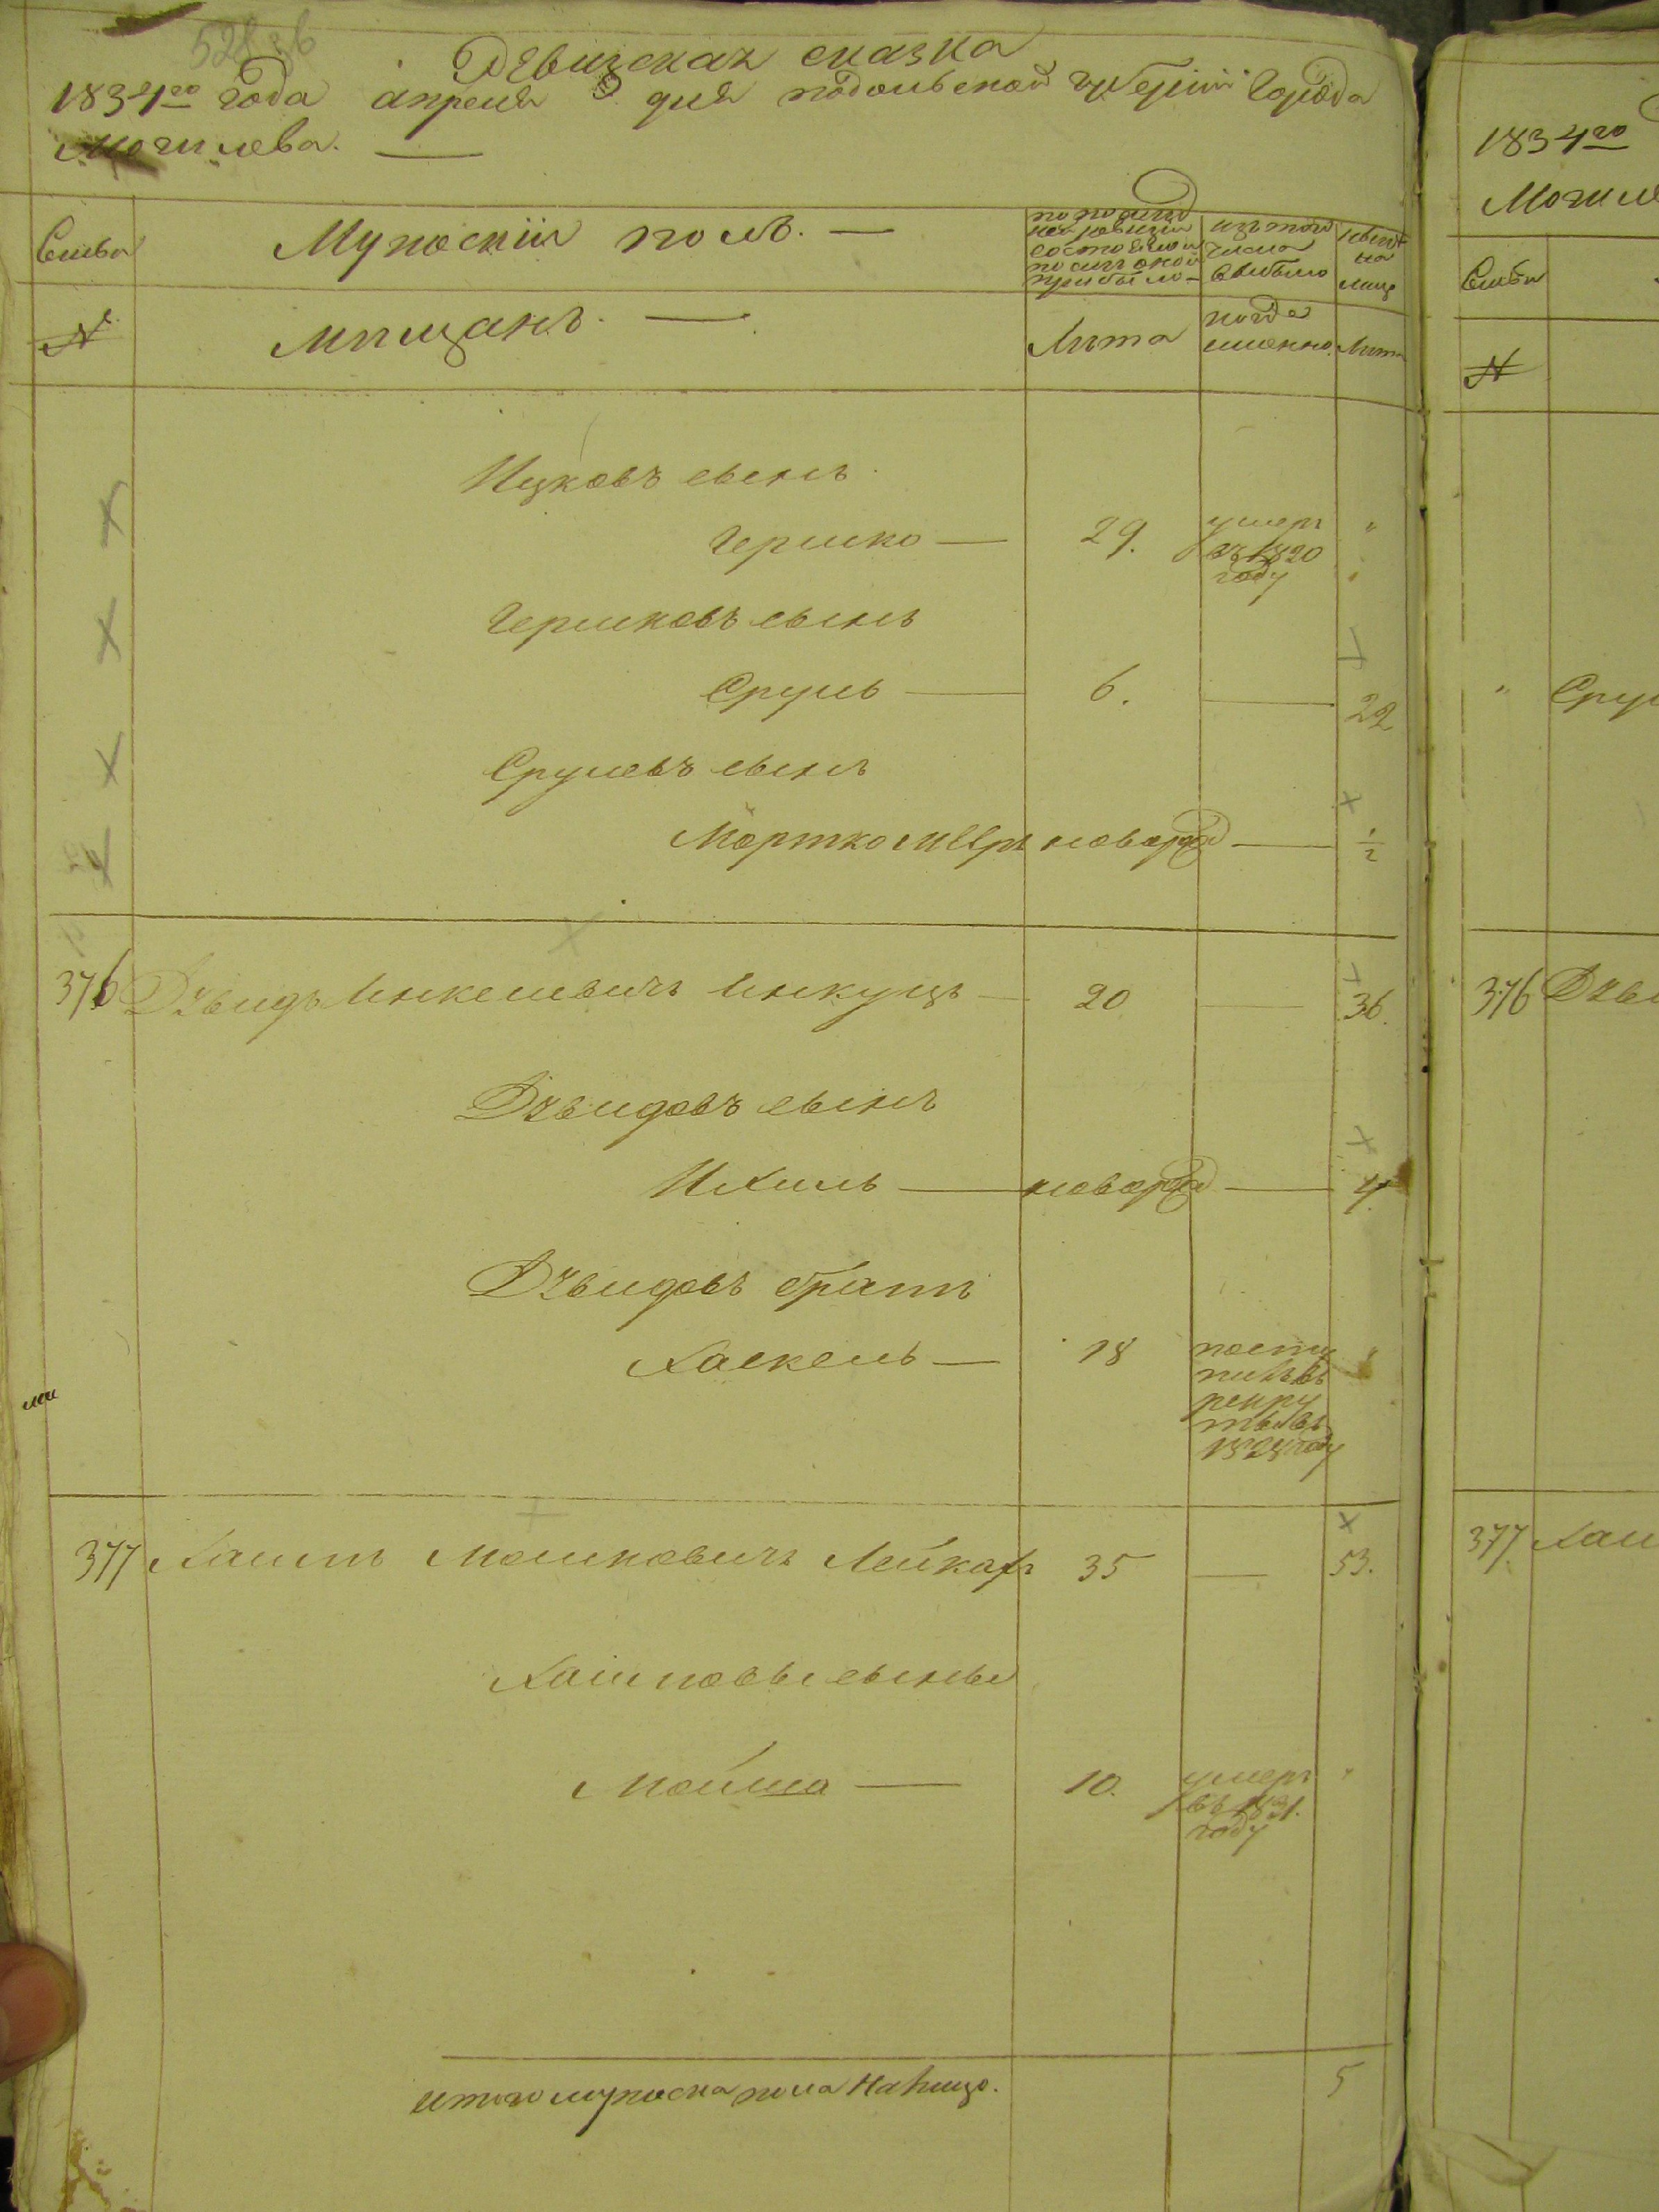 528 зв
Ревизская сказка
1834го года апреля 3 дня подольской губернии города
Могилева.
Семьи
Мужескій полъ.
по последней ревизіи состояло и после оной прибыло
изъ того числа выбыло
ныне на лицо
№
мещанъ.
Лета
когда именно.
Лета
Ицковъ сынъ
Гершко 29. умеръ въ 1820 году "
Гершковъ сынъ
Сруль 6. 22
Срулевъ сынъ
Мортко Меер новорож 1/2
376 Давидъ Инкелевичъ 20 36.
Давидовъ сынъ
Ихиль новорож 4.
Давидовъ братъ
Хаскель 18 поступилъ въ рекруты въ 1828 году "
377 Хаимъ Мошковичъ 35 53.
Хаимовы сынъ
Мойша 10. умеръ въ 1831. году "
итого мужеска пола На лицо. 5
1834го
Могиле
Семьи
№
" Сру
376 Дави
377 Хаи